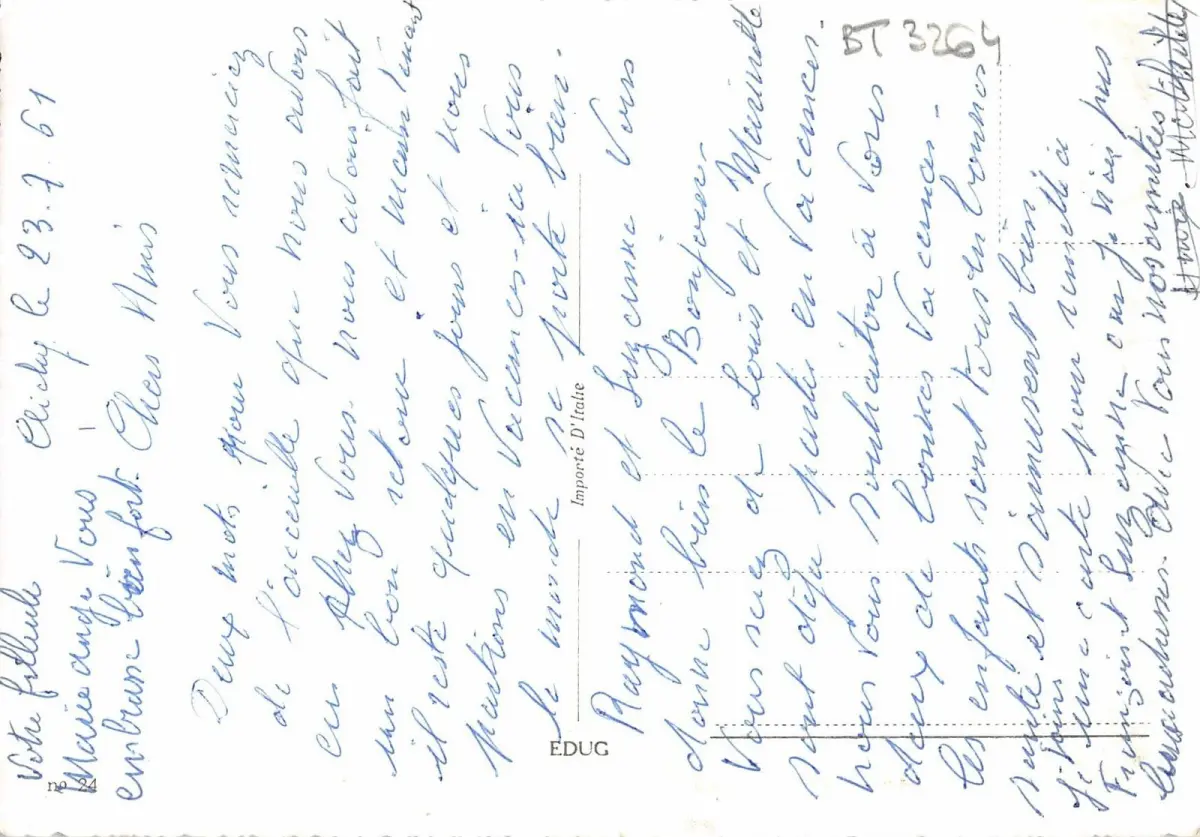 Clichy le 23.7.61
Chers Amis
Deux mots pour vous remerciez
de l'accueille que nous avons
eu chez vous. nous avons fait
un bon retour et maintenant
il reste quelques jours et nous
partions en vacances-ici tous
le monde se porte bien.
Raymond et Suzanne vous
donne bien le Bonjour.
Vous savez de Louis et
sont déjà partis en vacances.
nous vous souhaiton à vous
deux de bonnes vacances.
les enfants sont tous en bonnes
santé et s'amusent bien
je joins une carte pour remettre à
François et Suzanne car je n'ai pas
leurs adresses. avec tous nos amitiés
Votre filleule
Marie ange Vous
embrasse bien fort.
BT 3264
Importé D'Italie
EDUG
no 24